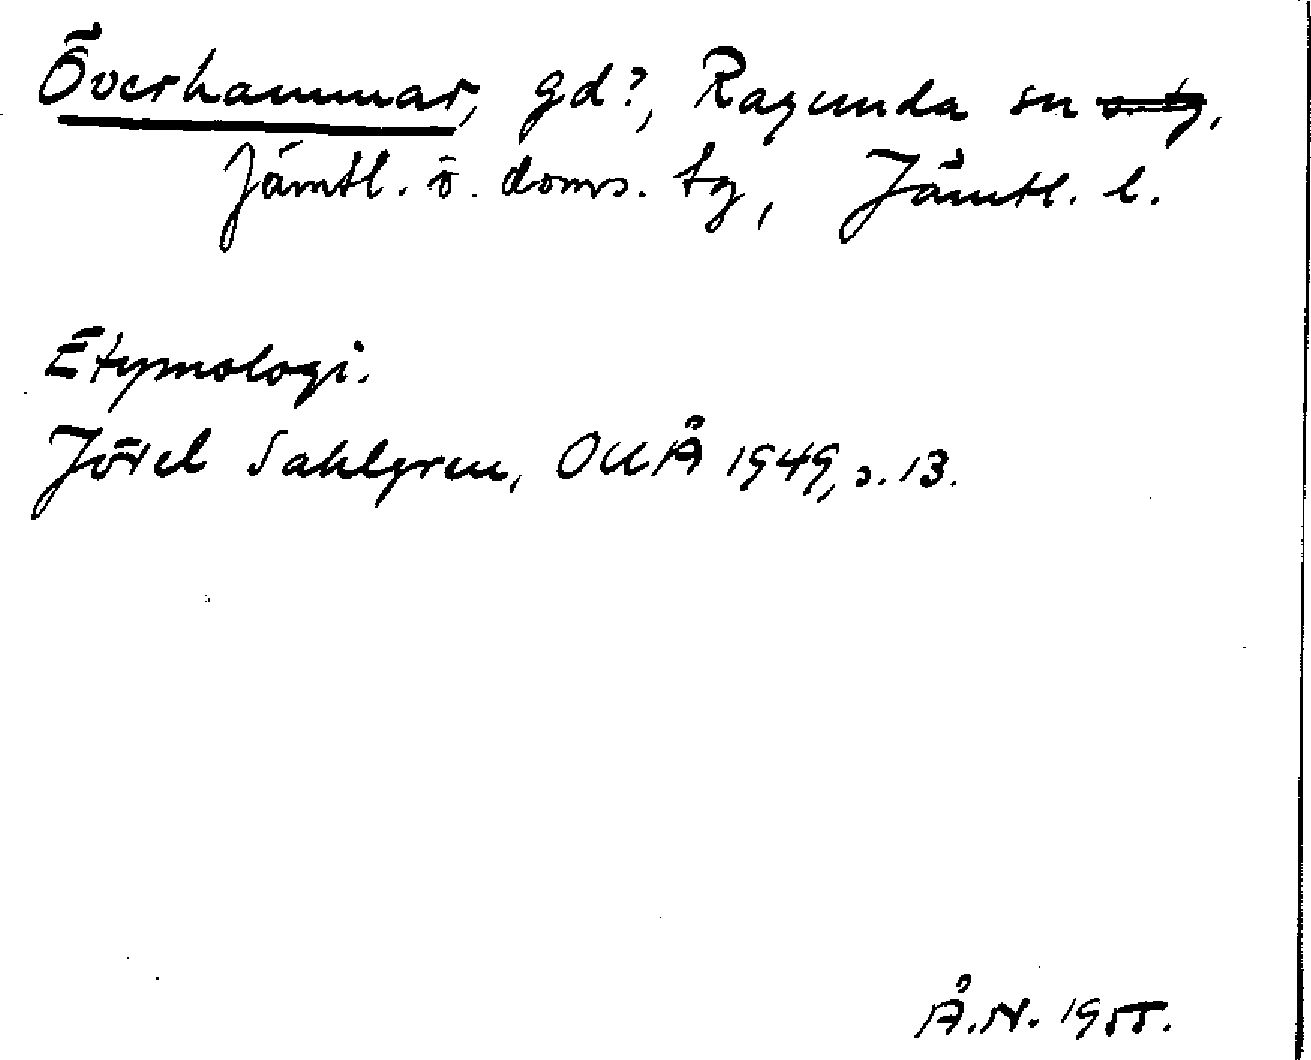 Överhammar, gd?, Ragunda sn o. tg,
Jämtl. ö. doms. tg, Jämtl. l.
Etymologi.
Jöran Sahlgren, OUÅ 1949, s. 13.
Å.N. 1955.